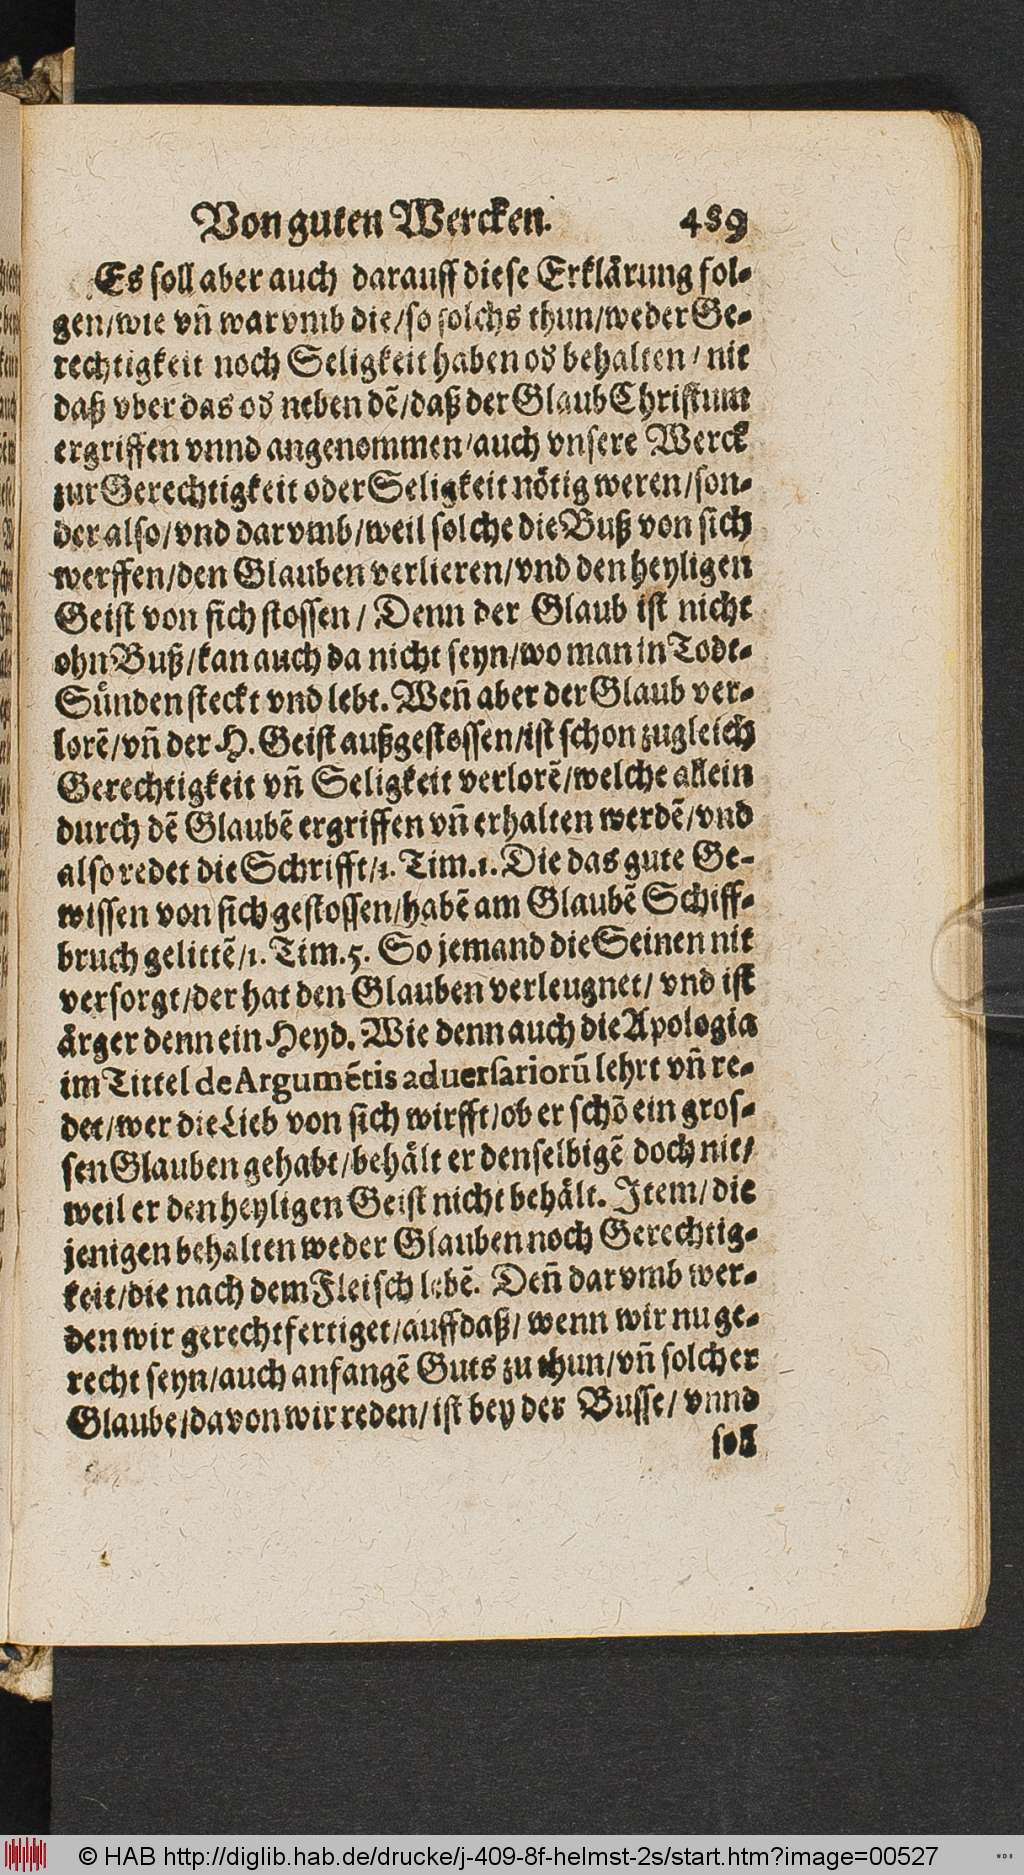 Von guten Wercken. 489
Es soll aber auch darauff diese Erklärung fol-
gen/wie vñ warvmb die/so solchs thun/weder Ge-
rechtigkeit noch Seligkeit haben od behalten/ nit
daß vber das od neben dē/daß der Glaub Christum
ergriffen vnnd angenommen/auch vnsere Werck
zur Gerechtigkeit oder Seligkeit nötig weren/son-
der also/vnd darvmb/weil solche die Buß von sich
werffen/den Glauben verlieren/vnd den heyligen
Geist von sich stossen/ Denn der Glaub ist nicht
ohn Buß/kan auch da nicht seyn/wo man in Todt-
Sünden steckt vnd lebt. Weñ aber der Glaub ver-
lorē/vñ der H. Geist außgestossen/ist schon zugleich
Gerechtigkeit vñ Seligkeit verlorē/welche allein
durch dē Glaubē ergriffen vñ erhalten werdē/vnd
also redet die Schrifft/1. Tim.1. Die das gute Ge-
wissen von sich gestossen/habē am Glaubē Schiff-
bruch gelittē/1. Tim.5. So jemand die Seinen nit
versorgt/der hat den Glauben verleugnet/ vnd ist
ärger denn ein Heyd. Wie denn auch die Apologia
im Tittel de Argumētis aduersariorū lehrt vñ re-
det/wer die Lieb von sich wirfft/ob er schō ein gros-
sen Glauben gehabt/behält er denselbigē doch nit/
weil er den heyligen Geist nicht behält. Item/ die
jenigen behalten weder Glauben noch Gerechtig-
keit/die nach dem Fleisch lebē. Deñ darvmb wer-
den wir gerechtfertiget/auff daß/ wenn wir nu ge-
recht seyn/auch anfangē Guts zu thun/vñ solcher
Glaube/davon wir reden/ist bey der Busse/ vnnd
soll
© HAB http://diglib.hab.de/drucke/j-409-8f-helmst-2s/start.htm?image=00527